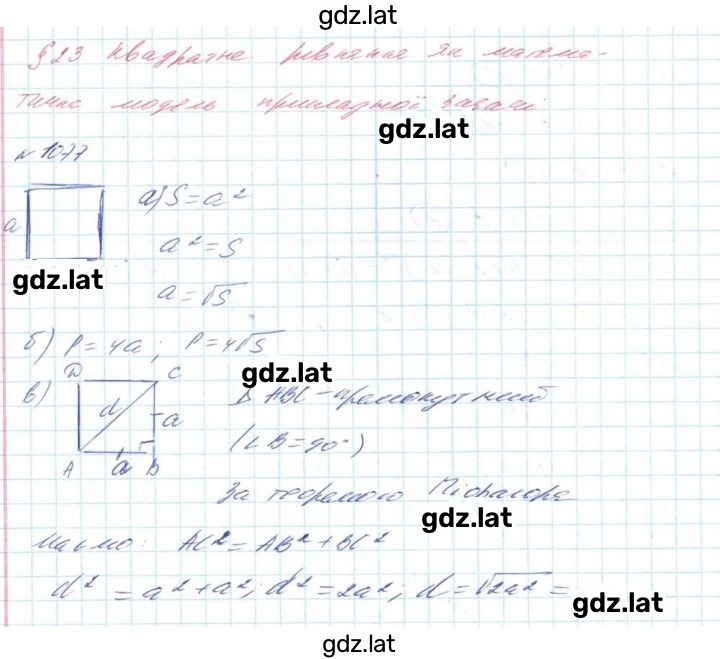 gdz.lat
§23 Квадратне рівняння як матема-
тична модель прикладної задачі
gdz.lat
№1077
a
а) S = a²
a² = S
gdz.lat
a = √S
б) P = 4a; P = 4√S
gdz.lat
в) D C
d a
A a B
Δ ABC - прямокутний
(∠B = 90°)
За теоремою Піфагора
gdz.lat
маємо: AC² = AB² + BC²
d² = a² + a²; d² = 2a²; d = √2a² =
gdz.lat
gdz.lat